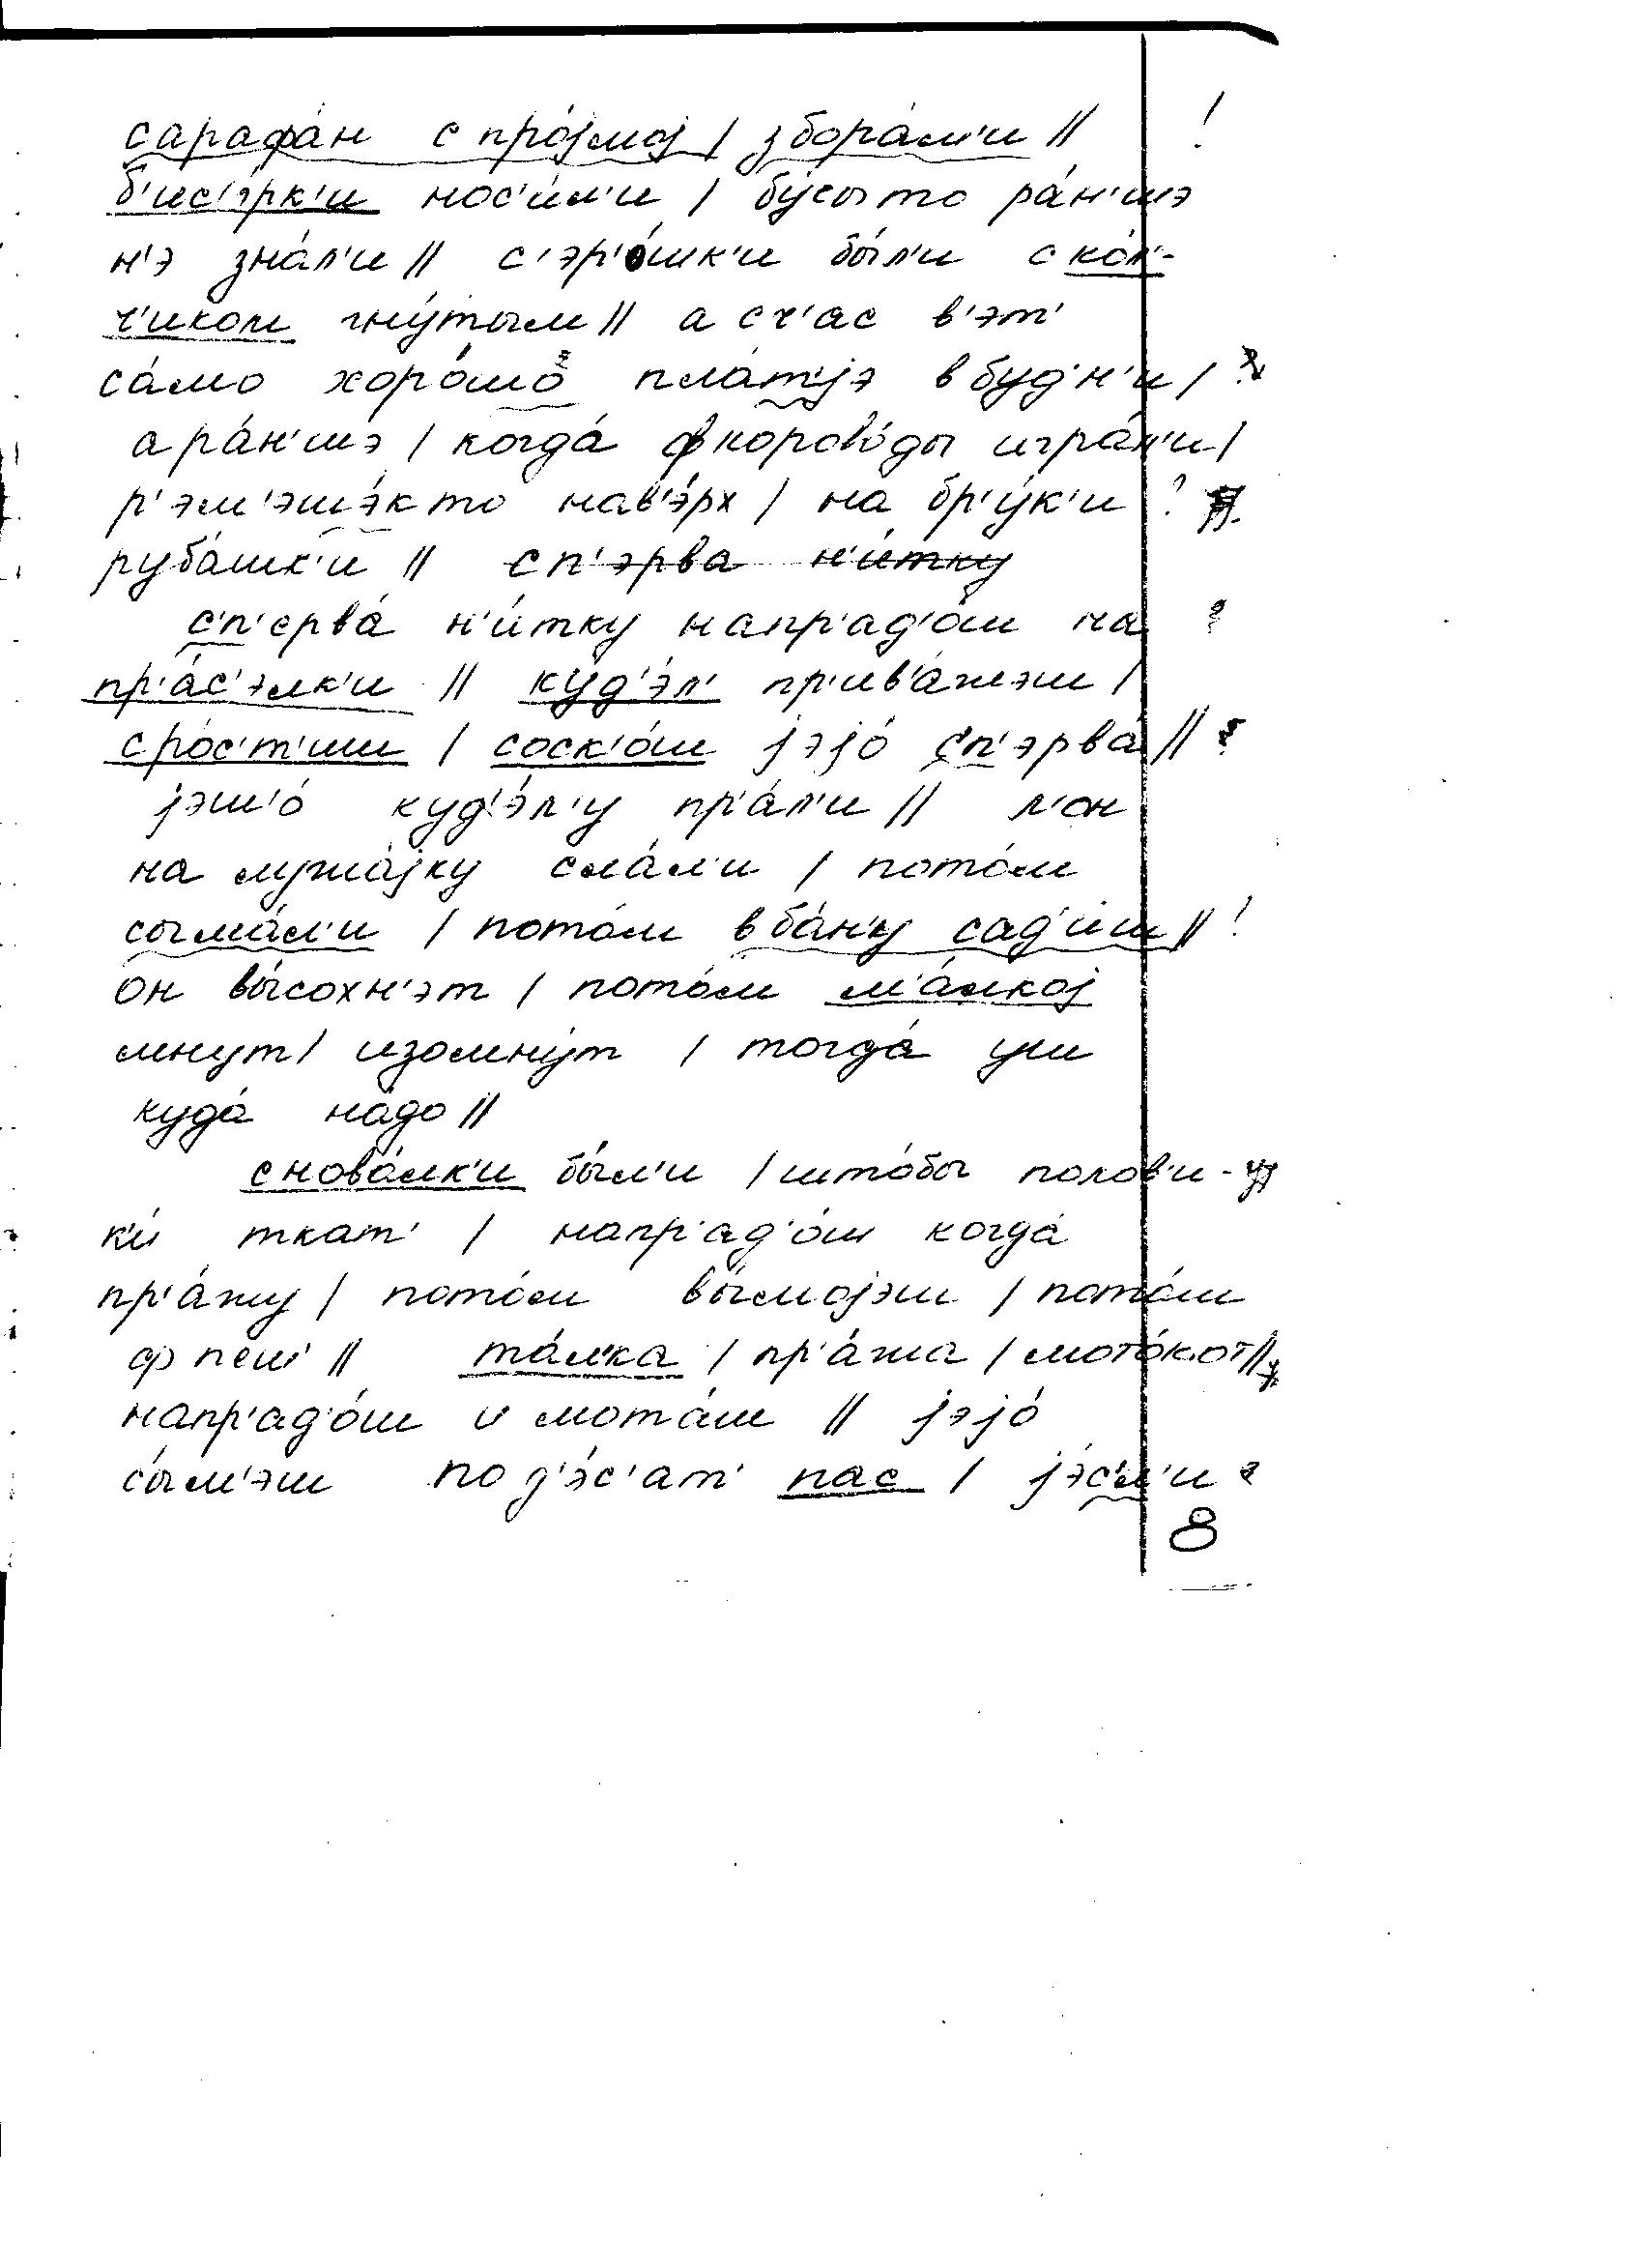 сарафа́н с про́јмој / збора́м'и // !
б'ис'э́рк'и нос'и́л'и / бу́сы то ра́н'шэ
н'э зна́л'и // с'эр'о́шк'и бы́л'и с ко́л'-
ч'иком гну́тым // а сч'ас в'эт'
са́мо хоро́шо пла́т'јэ в буд'н'и /
а ра́н'шэ / когда́ ф корово́ды игра́л'и /
р'эм'эшэ́к то нав'э́рх / на бр'у́к'и ?
руба́шк'и // сп'эрва н'и́тку
с'п'ерва́ н'и́тку напр'ад'о́ш на ?
пр'а́с'элк'и // куд'э́л' пр'ив'а́жэш /
сро́с'т'иш / соск'о́ш јэјо́ с'п'эрва́ // ?
јэш'о́ куд'э́л'у пр'а́л'и // л'он
на лужа́јку сла́л'и / пото́м
сыма́л'и / пото́м в ба́н'у сад'и́ш // !
он вы́сохн'эт / пото́м м'а́лкој
мнут / изомну́т / тогда́ уш
куда́ на́до //
снова́лк'и бы́л'и / што́бы полов'и-
к'и́ ткат' / напр'ад'о́ш когда́
пр'а́жу / пото́м вы́мојэш / пото́м
ф печ' // та́л'ка / пр'а́жа / мото́к от //
напр'ад'о́ш и мота́ш // јэјо́
сы́м'эш по д'э́с'ат' пас / јэ́с'л'и ?
8